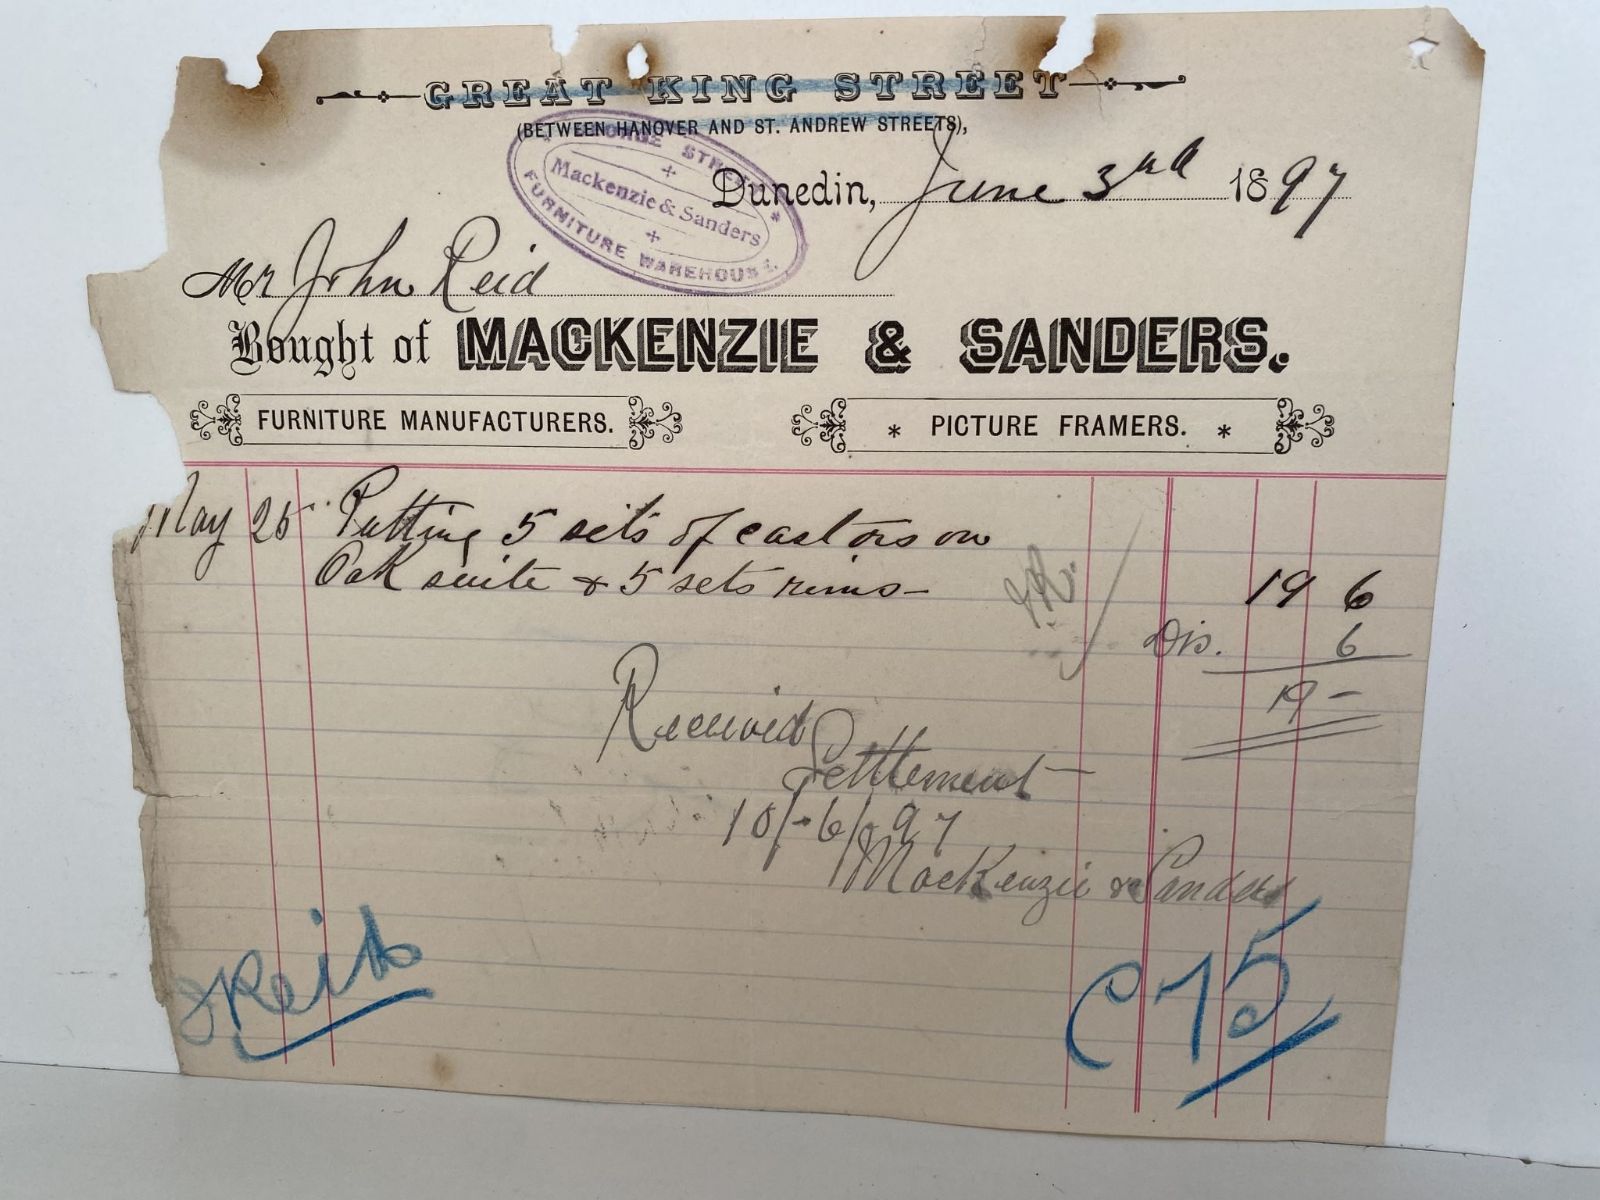 GREAT KING STREET
(BETWEEN HANOVER AND ST. ANDREW STREETS),
STREET
Mackenzie & Sanders
FURNITURE WAREHOUSE.
Dunedin, June 3rd 1897
Mr John Reid
Bought of MACKENZIE & SANDERS.
FURNITURE MANUFACTURERS. * PICTURE FRAMERS. *
May 25 Putting 5 sets of castors on
Oak suite & 5 sets rims— 19 6
Dis. 6
19 —
Received
Settlement
10/-6/-97
MacKenzie & Sanders
Reid
C75